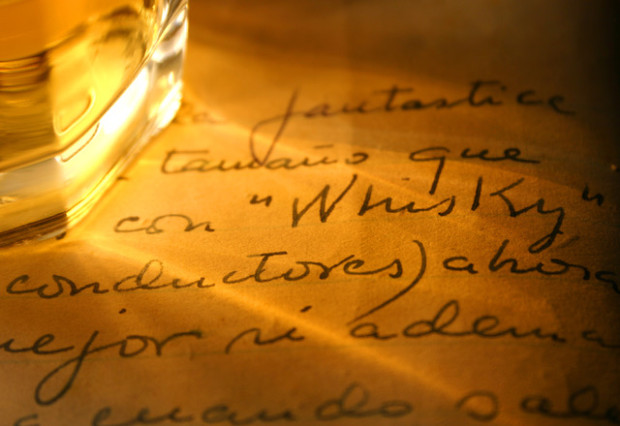 fantastica
tamaño que
con "Whisky"
conductores) ahora
mejor si adema
a cuando sale